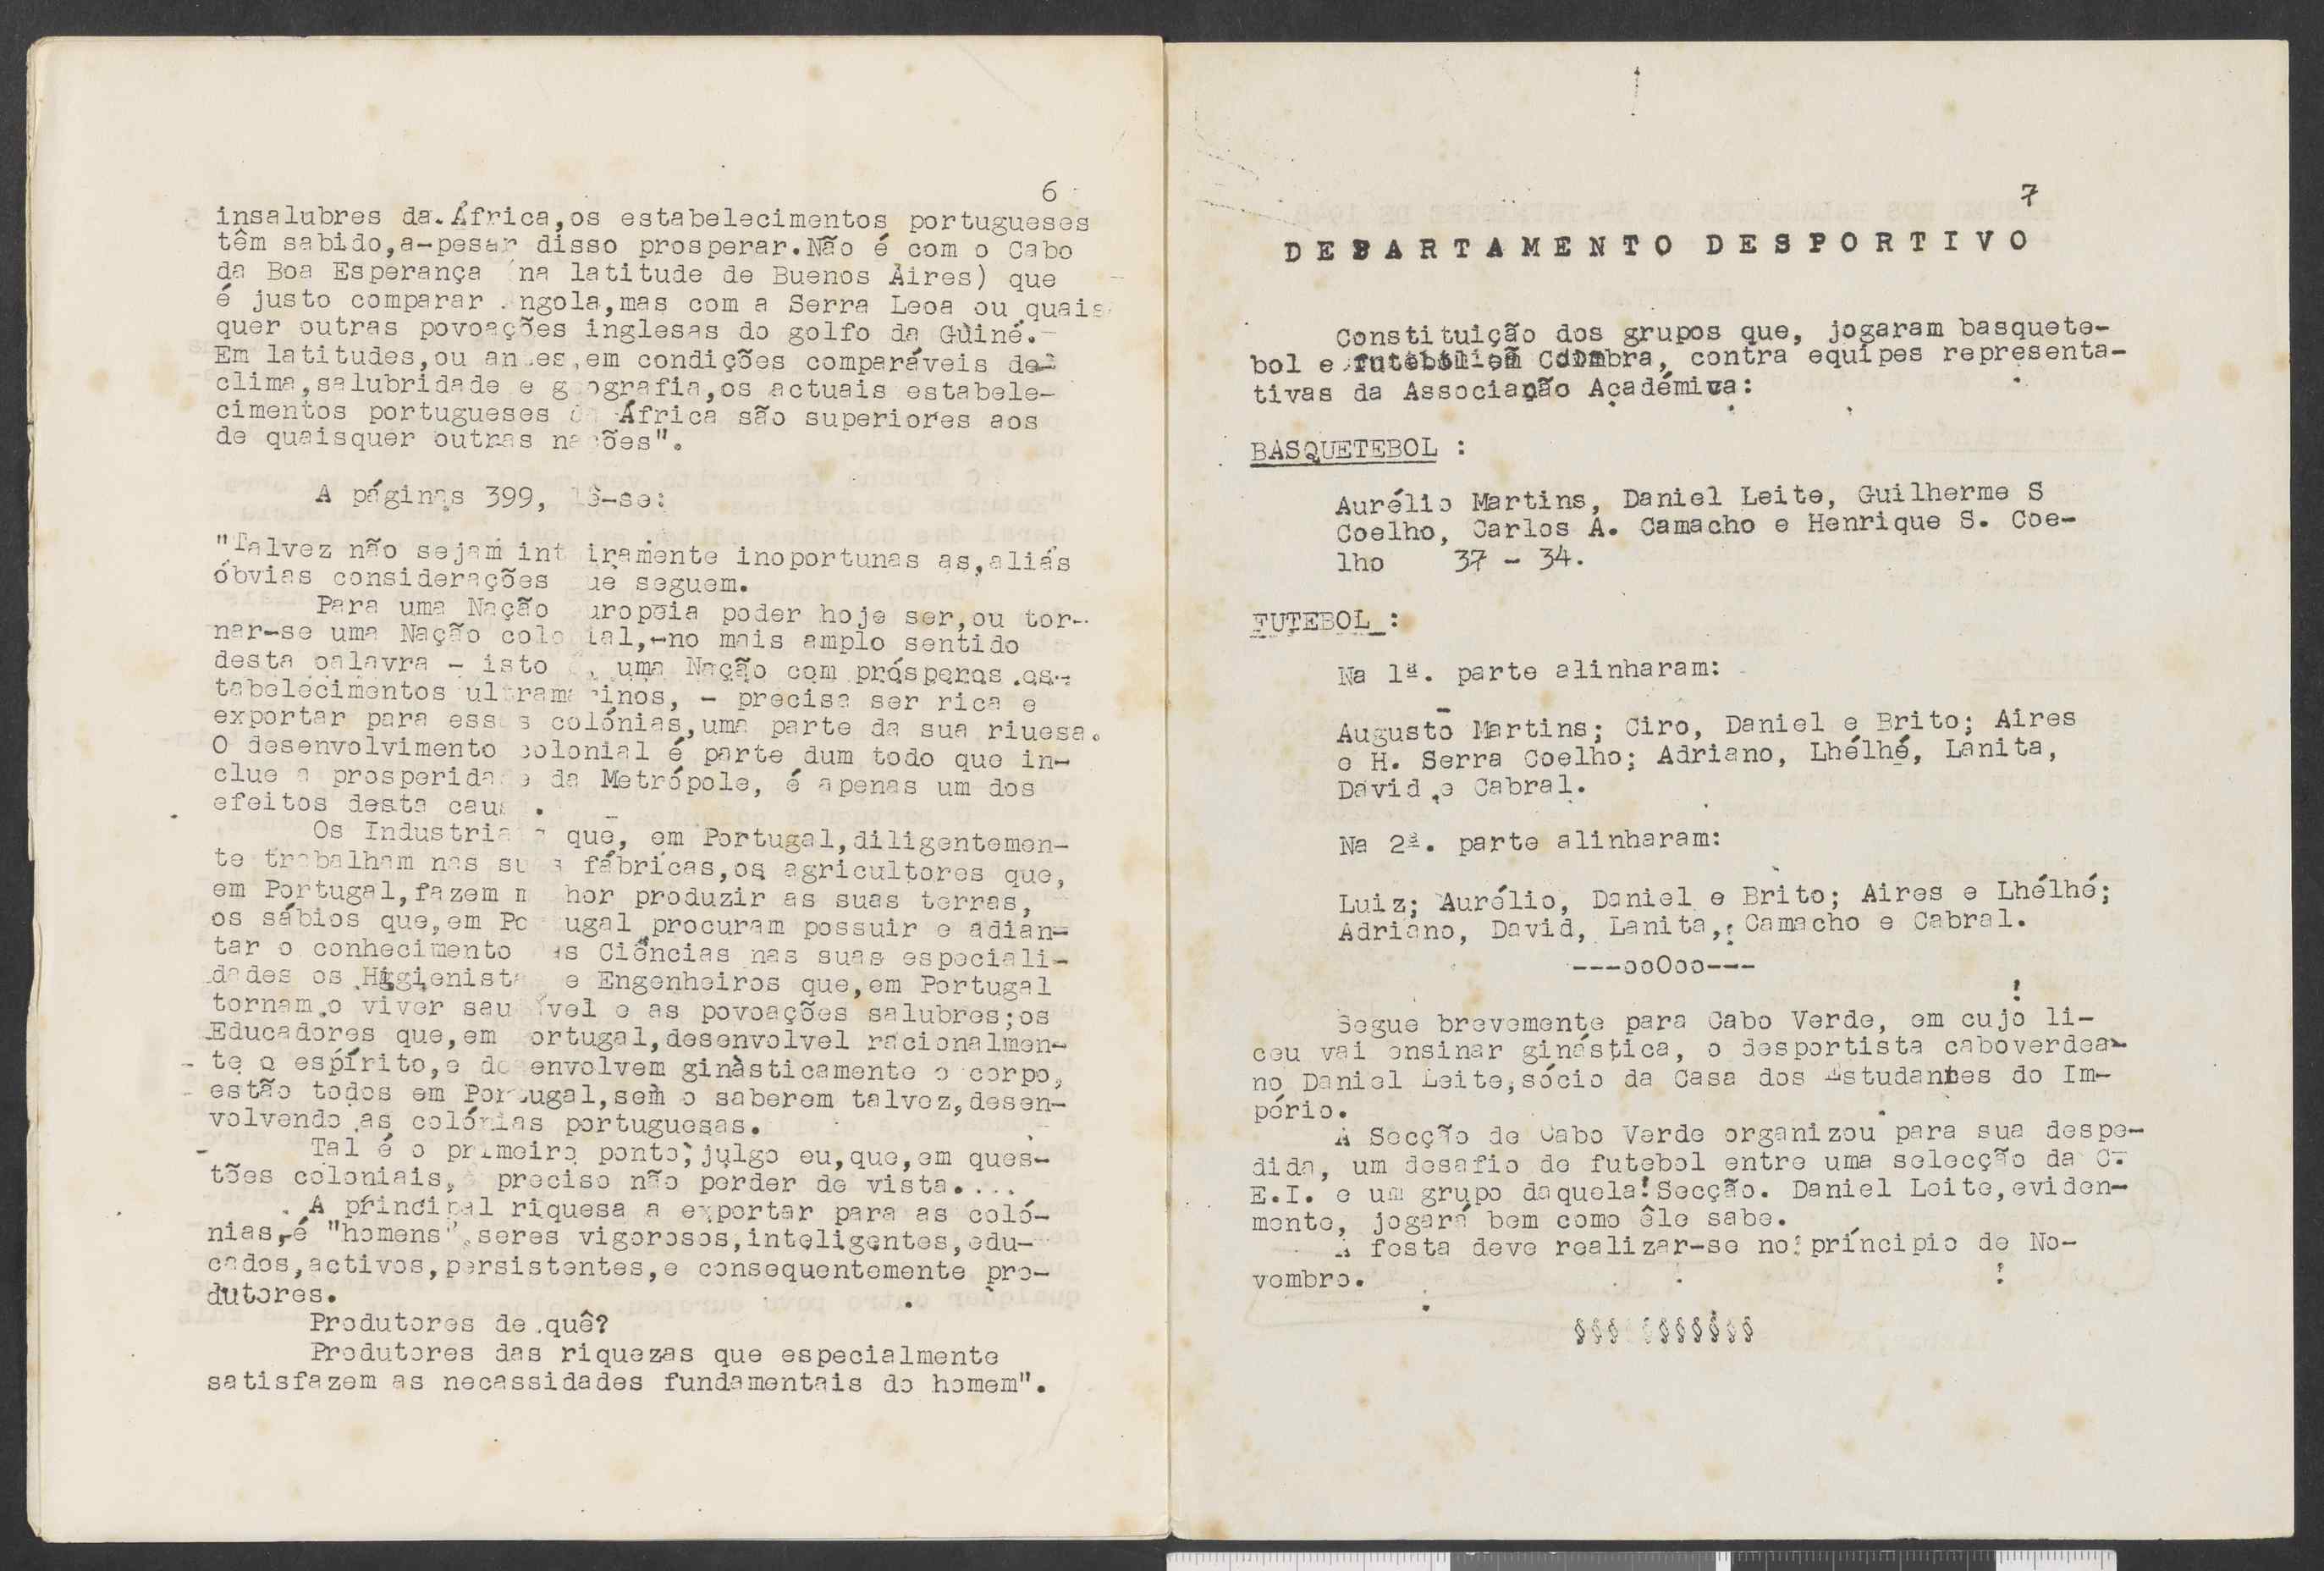 6
insalubres da África,os estabelecimentos portugueses
têm sabido,a-pesar disso prosperar.Não é com o Cabo
da Boa Esperança (na latitude de Buenos Aires) que
é justo comparar Angola,mas com a Serra Leoa ou quais
quer outras povoações inglesas do golfo da Gùiné.-
Em latitudes,ou antes,em condições comparáveis de
clima,salubridade e geografia,os actuais estabele-
cimentos portugueses da África são superiores aos
de quaisquer outras nações".
A páginas 399, lê-se:
"Talvez não sejam inteiramente inoportunas as,aliás
óbvias considerações que seguem.
Para uma Nação europeia poder hoje ser,ou tor-
nar-se uma Nação colonial,-no mais amplo sentido
desta palavra - isto é, uma Nação com prósperos es-
tabelecimentos ultramarinos, - precisa ser rica e
exportar para essas colónias,uma parte da sua riuesa.
O desenvolvimento colonial é parte dum todo que in-
clue a prosperidade da Metrópole, é apenas um dos
efeitos desta causa.
Os Industriais que, em Portugal,diligentemen-
te trabalham nas suas fábricas,os agricultores que,
em Portugal,fazem melhor produzir as suas terras,
os sábios que,em Portugal procuram possuir e adian-
tar o conhecimento das Ciências nas suas especiali-
dades os Higienistas e Engenheiros que,em Portugal
tornam o viver saudável e as povoações salubres;os
Educadores que,em Portugal,desenvolvel racionalmen-
te o espírito,e desenvolvem ginàsticamente o corpo,
estão todos em Portugal,sem o saberem talvez,desen-
volvendo as colónias portuguesas.
Tal é o primeiro ponto,julgo eu,que,em ques-
tões coloniais, é preciso não perder de vista....
A principal riquesa a exportar para as coló-
nias,é "homens",seres vigorosos,inteligentes,edu-
cados,activos,persistentes,e consequentemente pro-
dutores.
Produtores de quê?
Produtores das riquezas que especialmente
satisfazem as necassidades fundamentais do homem".
7
DEPARTAMENTO DESPORTIVO
Constituição dos grupos que, jogaram basquete-
bol e futebol em Coimbra, contra equipes representa-
tivas da Associação Académica:
BASQUETEBOL :
Aurélio Martins, Daniel Leite, Guilherme S
Coelho, Carlos A. Camacho e Henrique S. Coe-
lho 37 - 34.
FUTEBOL :
Na 1ª. parte alinharam:
Augusto Martins; Ciro, Daniel e Brito; Aires
e H. Serra Coelho; Adriano, Lhélhé, Lanita,
David e Cabral.
Na 2ª. parte alinharam:
Luiz; Aurélio, Daniel e Brito; Aires e Lhélhé;
Adriano, David, Lanita, Camacho e Cabral.
---ooOoo---
Segue brevemente para Cabo Verde, em cujo li-
ceu vai ensinar ginástica, o desportista caboverdea-
no Daniel Leite,sócio da Casa dos Estudantes do Im-
pério.
A Secção de Cabo Verde organizou para sua despe-
dida, um desafio de futebol entre uma selecção da C.
E.I. e um grupo daquela Secção. Daniel Leite,eviden-
mente, jogará bem como êle sabe.
A festa deve realizar-se no príncipio de No-
vembro.
§§§ §§§§§§§